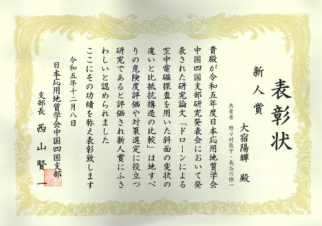 表彰状
新人賞
大宿陽輝 殿
共著者 野々村敦子・長谷川修一
貴殿が令和五年度日本応用地質学会
中国四国支部研究発表会において発
表された研究論文「ドローンによる
空中電磁探査を用いた斜面の変状の
違いと比抵抗構造の比較」は地すべ
りの危険度評価や対策選定に役立つ
研究であると評価され新人賞にふさ
わしいと認められました
ここにその功績を称え表彰致します
令和五年十二月八日
日本応用地質学会中国四国支部
支部長 西山賢一